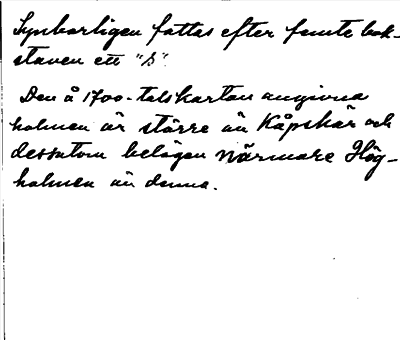 Synbarligen fattas efter femte bok-
staven ett "s".
Den å 1700-talskartan angivna
holmen är större än Kåpskär och
dessutom belägen närmare Hög-
holmen än denna.